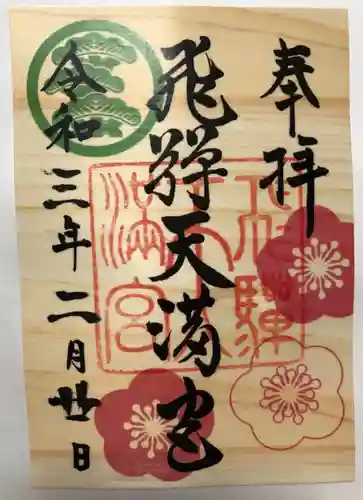 奉拝
飛騨天満宮
令和三年二月廿日
飛騨天満宮